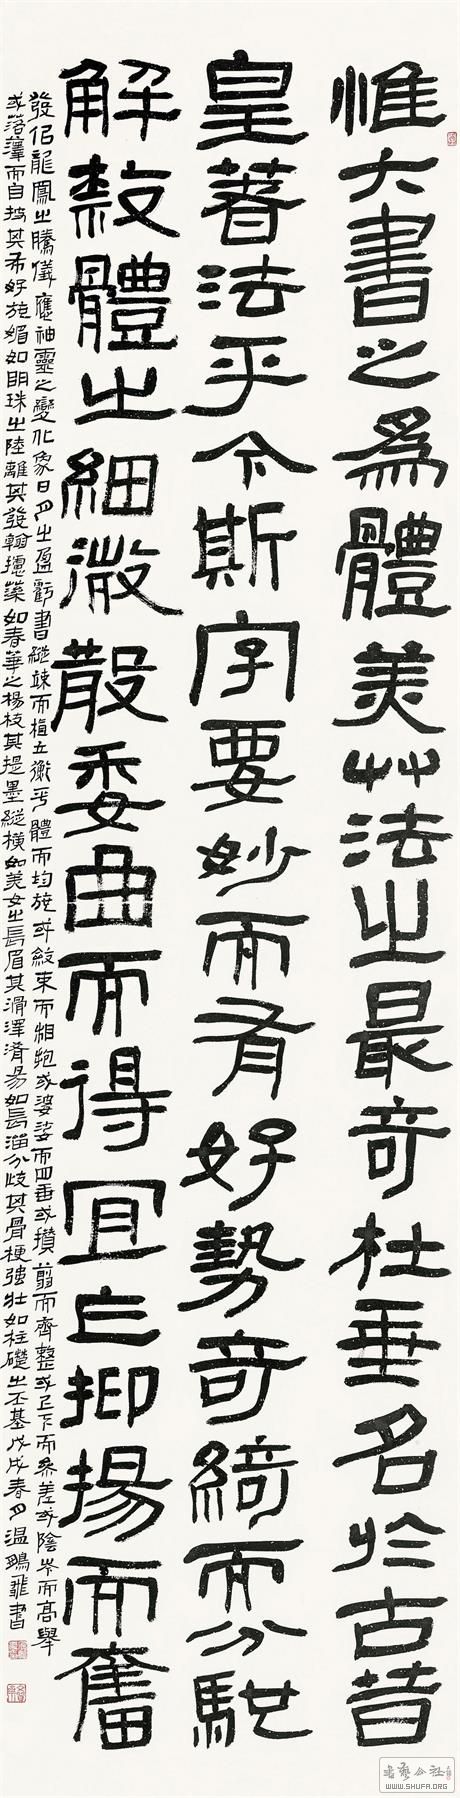 惟六書之為體美艸法之最奇杜垂名於古昔
皇著法乎今斯字要妙而有好勢奇綺而分馳
解散體之細微散委曲而得宜乍抑揚而奮
發侶龍鳳之騰儀應神靈之變化象日月之盈虧書縱竦而植立衡平體而均施或斂束而相抱或婆娑而四垂或攢翦而齊整或上下而參差或陰岑而高舉
或落籜而自披其布好施媚如明珠之陸離其發翰攄藻如春華之楊枝其提墨縱橫如美女之長眉其滑澤淆易如長溜分歧其骨梗強壯如柱礎之丕基戊戌春月溫鵬飛書
书艺公社
WWW.SHUFA.ORG